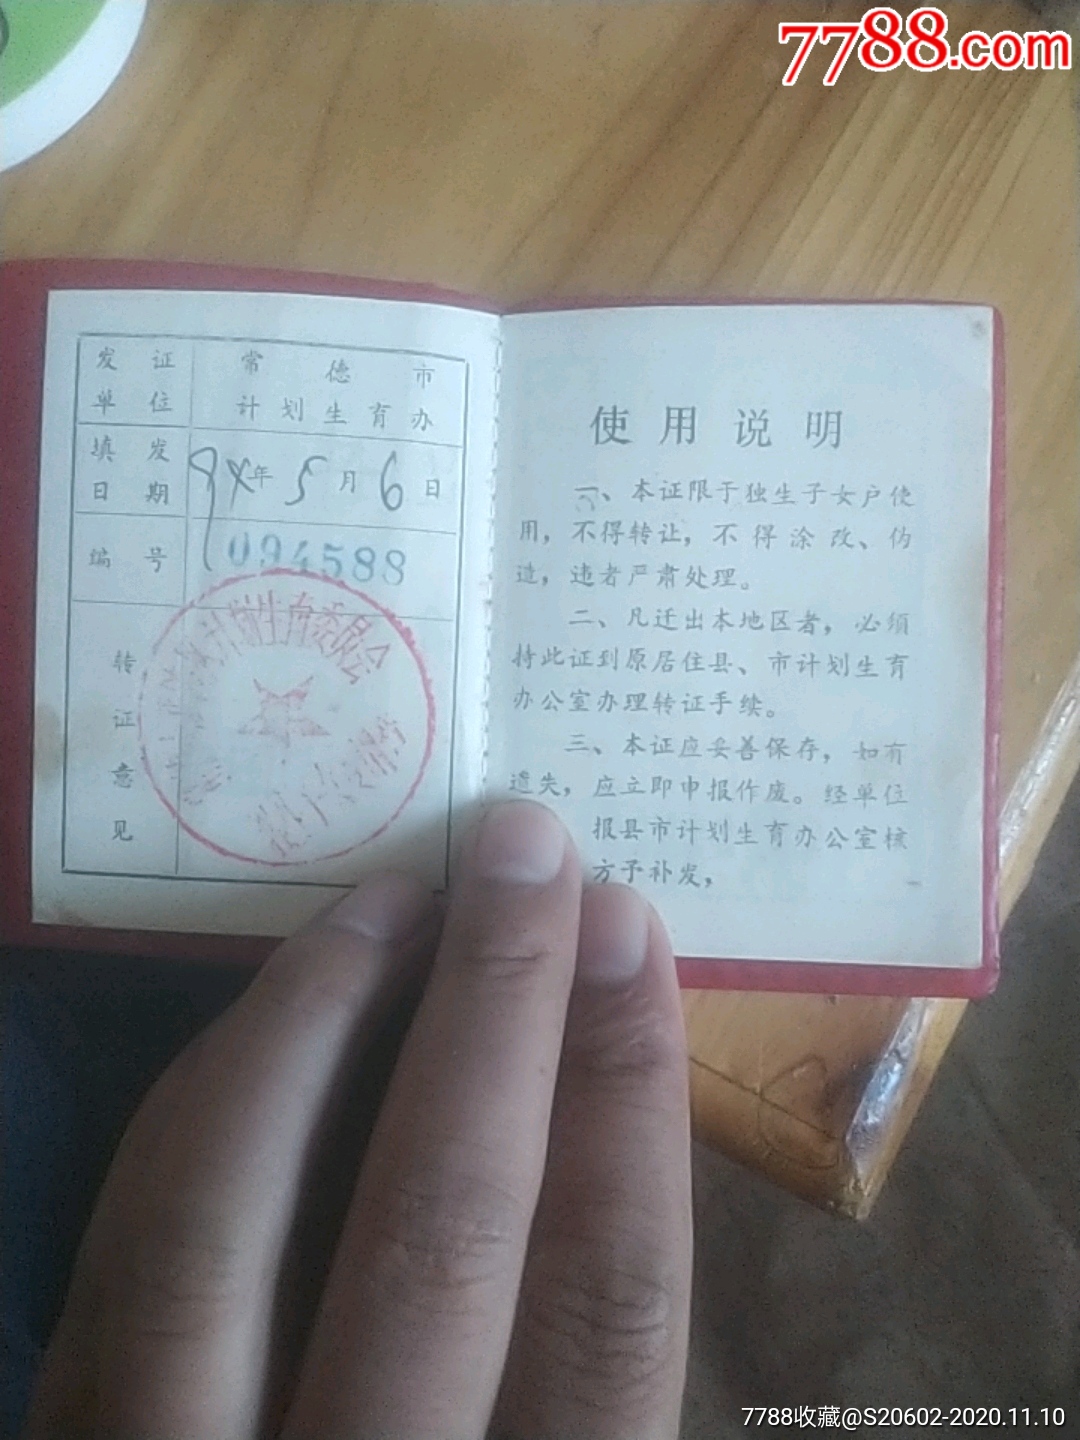 7788.com
发证单位
常德市
计划生育办
填发日期
94年5月6日
编号
094588
转证意见
计划生育委员会
使用说明
一、本证限于独生子女户使
用，不得转让，不得涂改、伪
造，违者严肃处理。
二、凡迁出本地区者，必须
持此证到原居住县、市计划生育
办公室办理转证手续。
三、本证应妥善保存，如有
遗失，应立即申报作废。经单位
报县市计划生育办公室核
方予补发，
7788收藏@S20602-2020.11.10